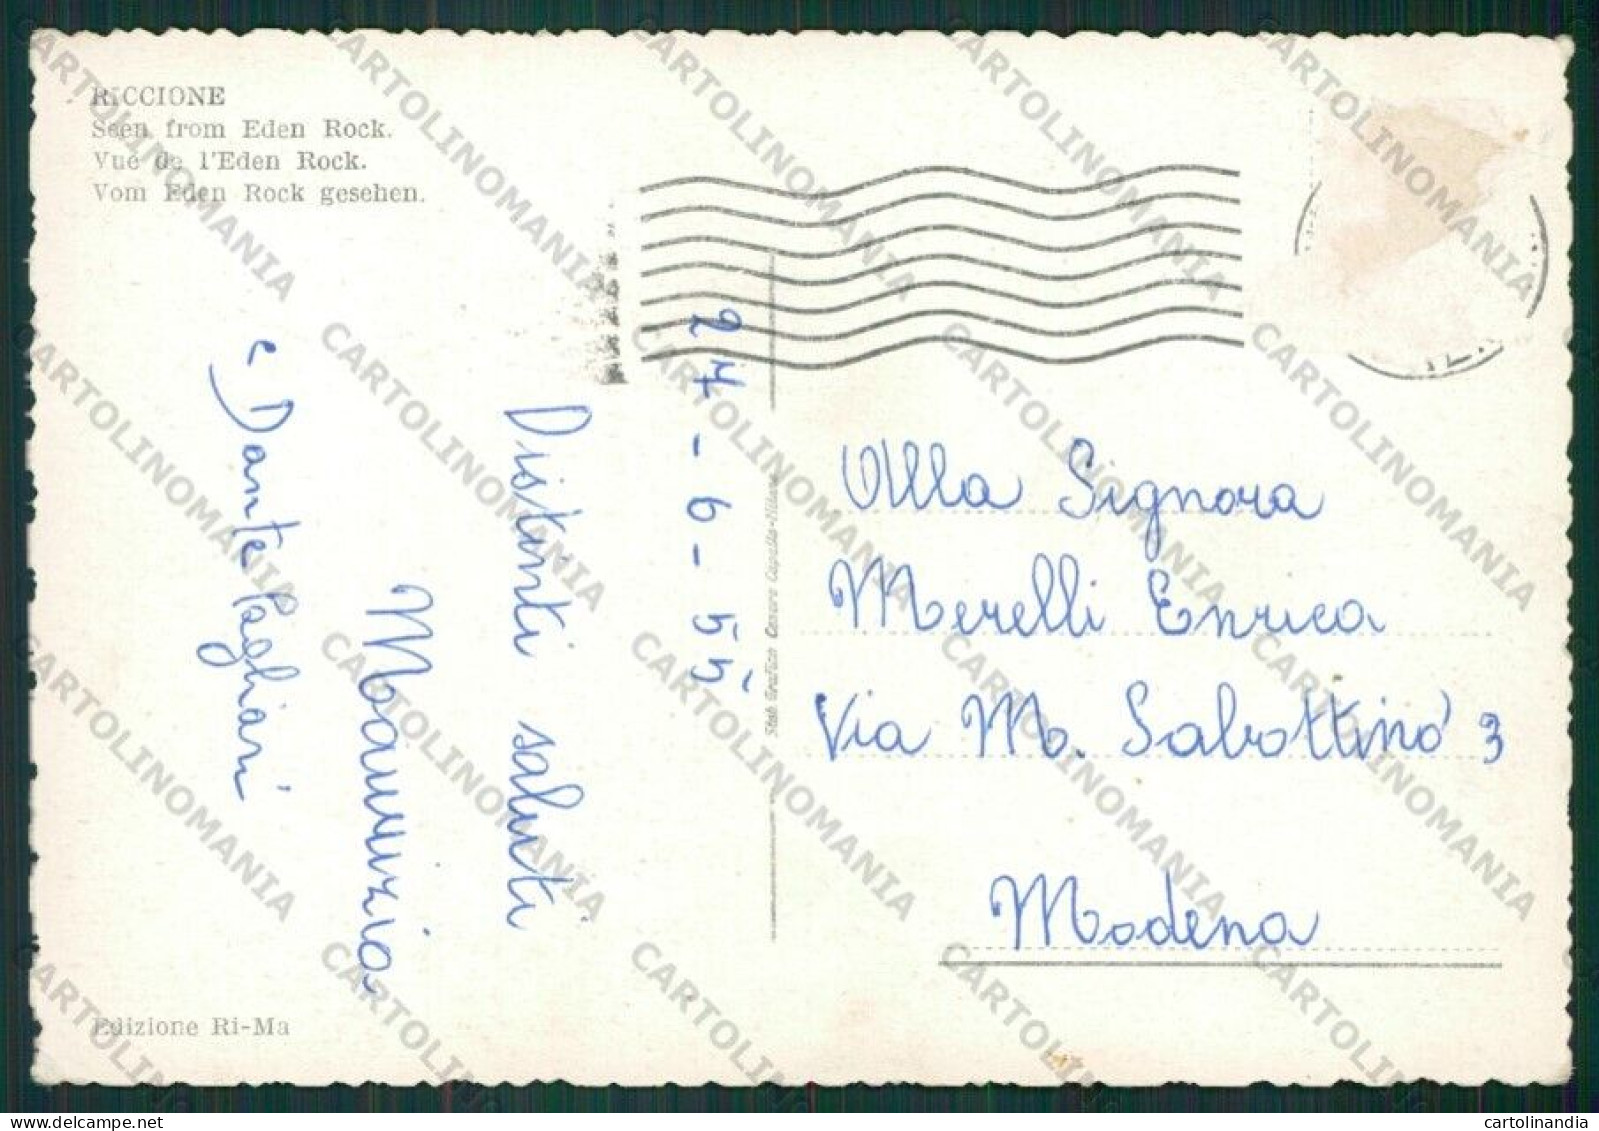 RICCIONE
Seen from Eden Rock.
Vue de l'Eden Rock.
Vom Eden Rock gesehen.
24-6-55
Distinti saluti
Maurizia
e Dante Pagliari
Edizione Ri-Ma
Alla Signora
Merelli Enrica
Via M. Sabottino 3
Modena
CARTOLINOMANIA
cartolinandia